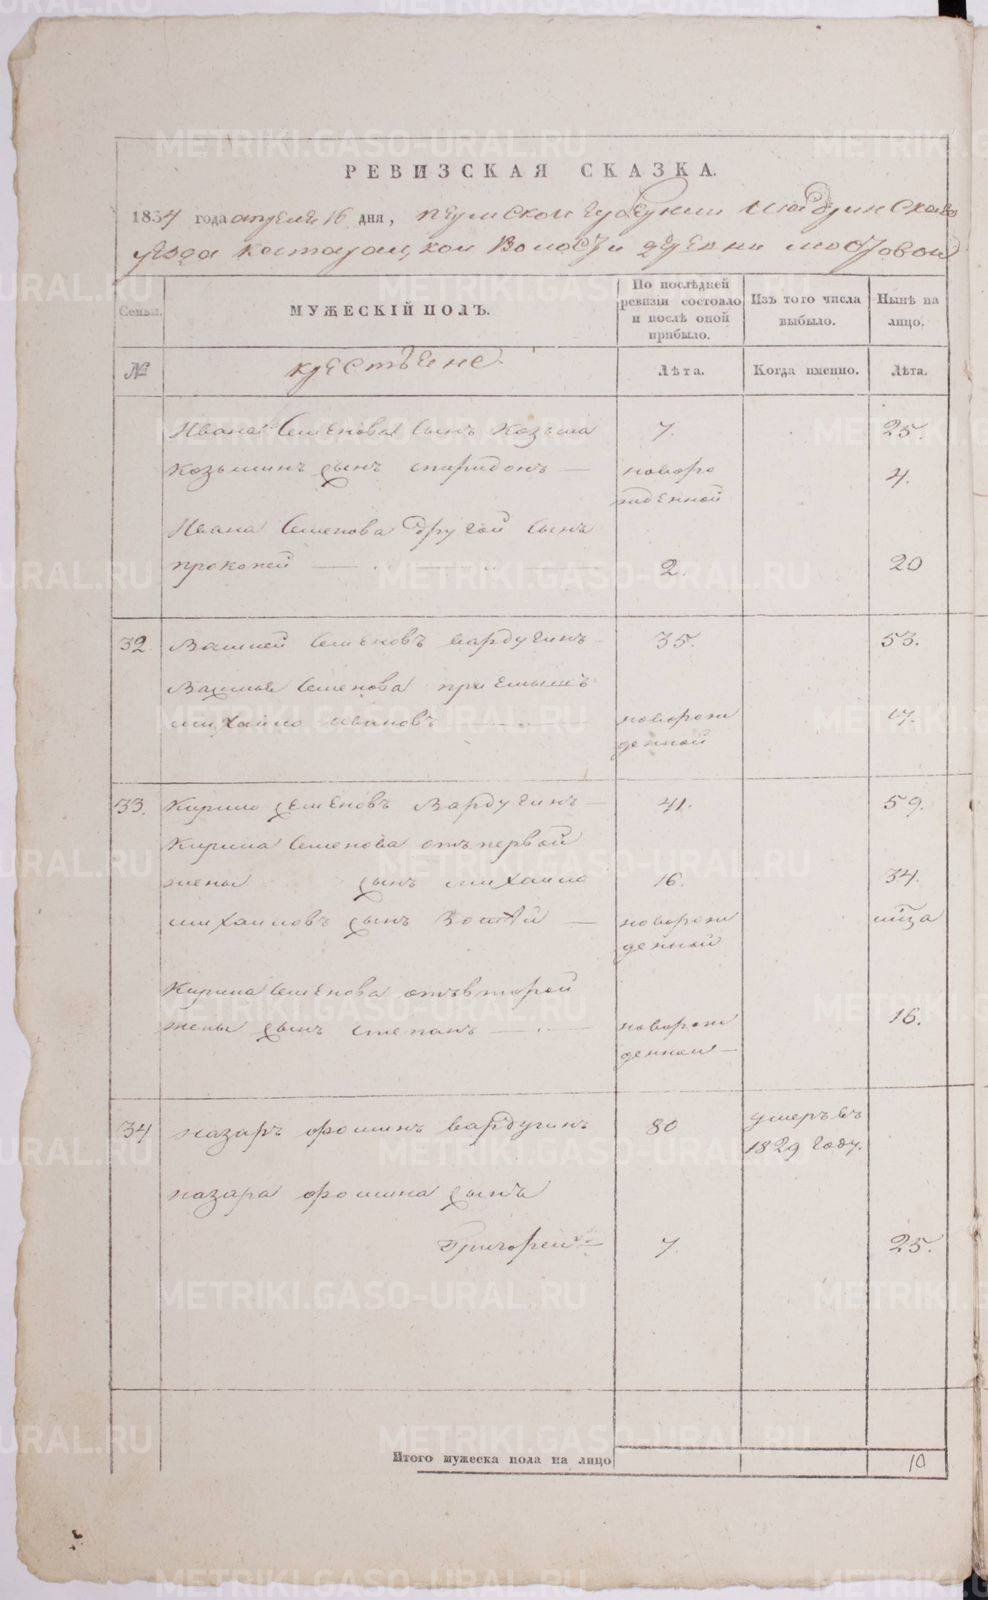 METRIKI.GASO-URAL.RU
РЕВИЗСКАЯ СКАЗКА.
1834 года апреля 16 дня, пермской губернии шадринскаго
уезда волости деревни мостовой
Семьи.
МУЖЕСКІЙ ПОЛЪ.
По послѣдней ревизіи состояло и послѣ оной прибыло.
Изъ того числа выбыло.
Нынѣ на лицо.
№
крестьяне
Лѣта.
Когда именно.
Лѣта.
Ивана Семенова сынъ Козьма 7. 25.
Козьминъ сынъ спиридонъ — новоро 4.
жденной
Ивана Семенова другой сынъ
прокопей — 2. 20
32 Василей Семеновъ вардугинъ 35. 53.
Василья Семенова приемышъ
михайло ивановъ новорож 17.
денной
33. Кирило семеновъ Вардугинъ 41. 59.
Кирила Семенова отъ первой
жены сынъ михайло 16. 34.
михайловъ сынъ — новорож
денной
Кирила Семенова отъ второй
жены сынъ степанъ — новорож 16.
денной —
34 назаръ фоминъ вардугинъ 80 умеръ въ
1829 году.
назара фомина сынъ
Григорей 7. 25.
Итого мужеска пола на лицо 10